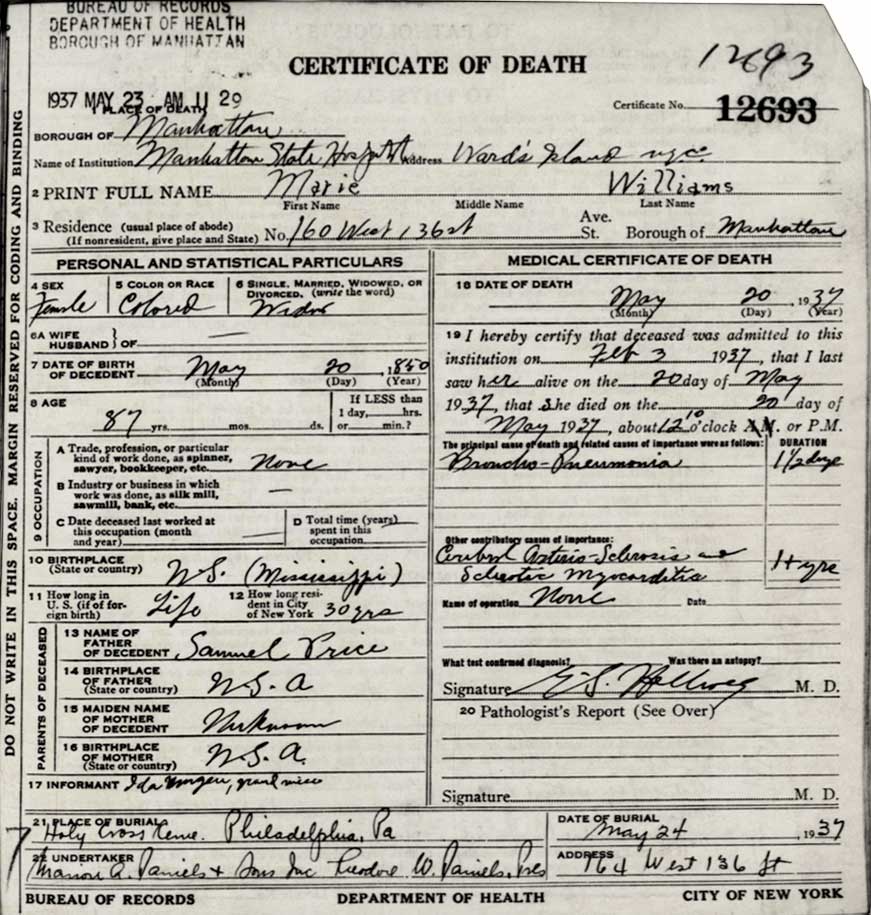 BUREAU OF RECORDS
DEPARTMENT OF HEALTH
BOROUGH OF MANHATTAN
CERTIFICATE OF DEATH
12693
1937 MAY 23 AM 11 29
Certificate No. 12693
1 PLACE OF DEATH
BOROUGH OF Manhattan
Name of Institution Manhattan State Hospital Address Ward's Island nyc.
2 PRINT FULL NAME Marie Williams
First Name Middle Name Last Name
3 Residence (usual place of abode) No. 160 West 136 st Ave. St. Borough of Manhattan
(If nonresident, give place and State)
PERSONAL AND STATISTICAL PARTICULARS
4 SEX Female
5 COLOR OR RACE Colored
6 SINGLE, MARRIED, WIDOWED, OR DIVORCED. (write the word) Widow
6A WIFE HUSBAND } OF —
7 DATE OF BIRTH OF DECEDENT May 20, 1850
(Month) (Day) (Year)
8 AGE 87 yrs. mos. ds.
If LESS than 1 day, hrs. or min.?
9 OCCUPATION
A Trade, profession, or particular kind of work done, as spinner, sawyer, bookkeeper, etc. None
B Industry or business in which work was done, as silk mill, sawmill, bank, etc. —
C Date deceased last worked at this occupation (month and year) —
D Total time (years) spent in this occupation —
10 BIRTHPLACE (State or country) U.S. (Mississippi)
11 How long in U. S. (if of foreign birth) Life
12 How long resident in City of New York 30 yrs
PARENTS OF DECEASED
13 NAME OF FATHER OF DECEDENT Samuel Price
14 BIRTHPLACE OF FATHER (State or country) U.S.A
15 MAIDEN NAME OF MOTHER OF DECEDENT Unknown
16 BIRTHPLACE OF MOTHER (State or country) U.S.A.
17 INFORMANT Ida grand niece
MEDICAL CERTIFICATE OF DEATH
18 DATE OF DEATH May 20, 1937
(Month) (Day) (Year)
19 I hereby certify that deceased was admitted to this
institution on Feb 3 1937, that I last
saw her alive on the 20 day of May
1937, that she died on the 20 day of
May 1937, about 12 10 o'clock A.M. or P.M.
The principal cause of death and related causes of importance were as follows: DURATION
Broncho-Pneumonia 1 1/2 days
Other contributory causes of importance:
Cerebral Arterio-Sclerosis and
Sclerotic Myocarditis 1+ yrs
Name of operation None Date
What test confirmed diagnosis? Was there an autopsy?
Signature M. D.
20 Pathologist's Report (See Over)
Signature M. D.
21 PLACE OF BURIAL Holy Cross Philadelphia, Pa
DATE OF BURIAL May 24, 1937
22 UNDERTAKER Marion A. Daniels + Sons Inc Theodore W. Daniels, Pres
ADDRESS 164 West 136 St
BUREAU OF RECORDS DEPARTMENT OF HEALTH CITY OF NEW YORK
DO NOT WRITE IN THIS SPACE. MARGIN RESERVED FOR CODING AND BINDING
7